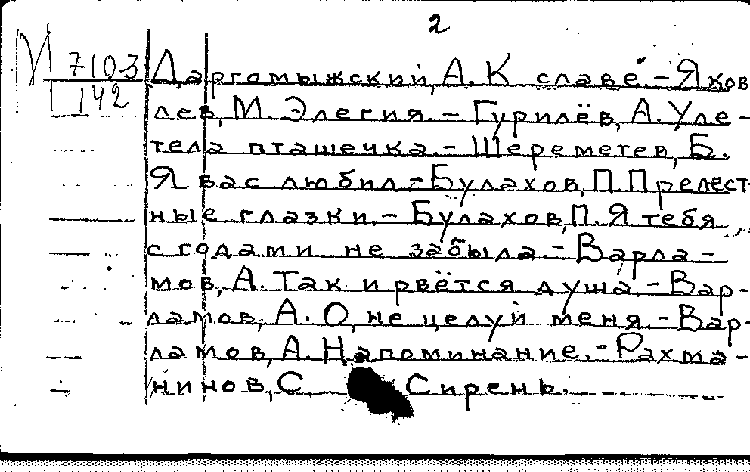 2
М 7103
142
Даргомыжский, А. К славе. - Яков
лев, М. Элегия. - Гурилёв, А. Уле-
тела пташечка - Шереметев, Б.
Я вас любил. - Булахов, П. Прелест
ные глазки. - Булахов, П. Я тебя
с годами не забыла. - Варла-
мов, А. Так и рвётся душа. - Вар-
ламов, А. О, не целуй меня. - Вар-
ламов, А. Напоминание. - Рахма-
нинов, С. Сирень.